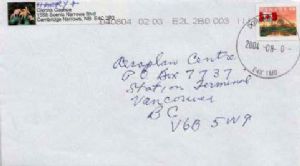 1558 Scenic Narrows Blvd
Cambridge Narrows, NB E4C 3B5
040804 02 03 E2L 2B0 003
2004 -08- 0
E4K 1M0
Aeroplan Centre
PO Box 7737
Station Terminal
Vancouver
BC
V6B 5W9